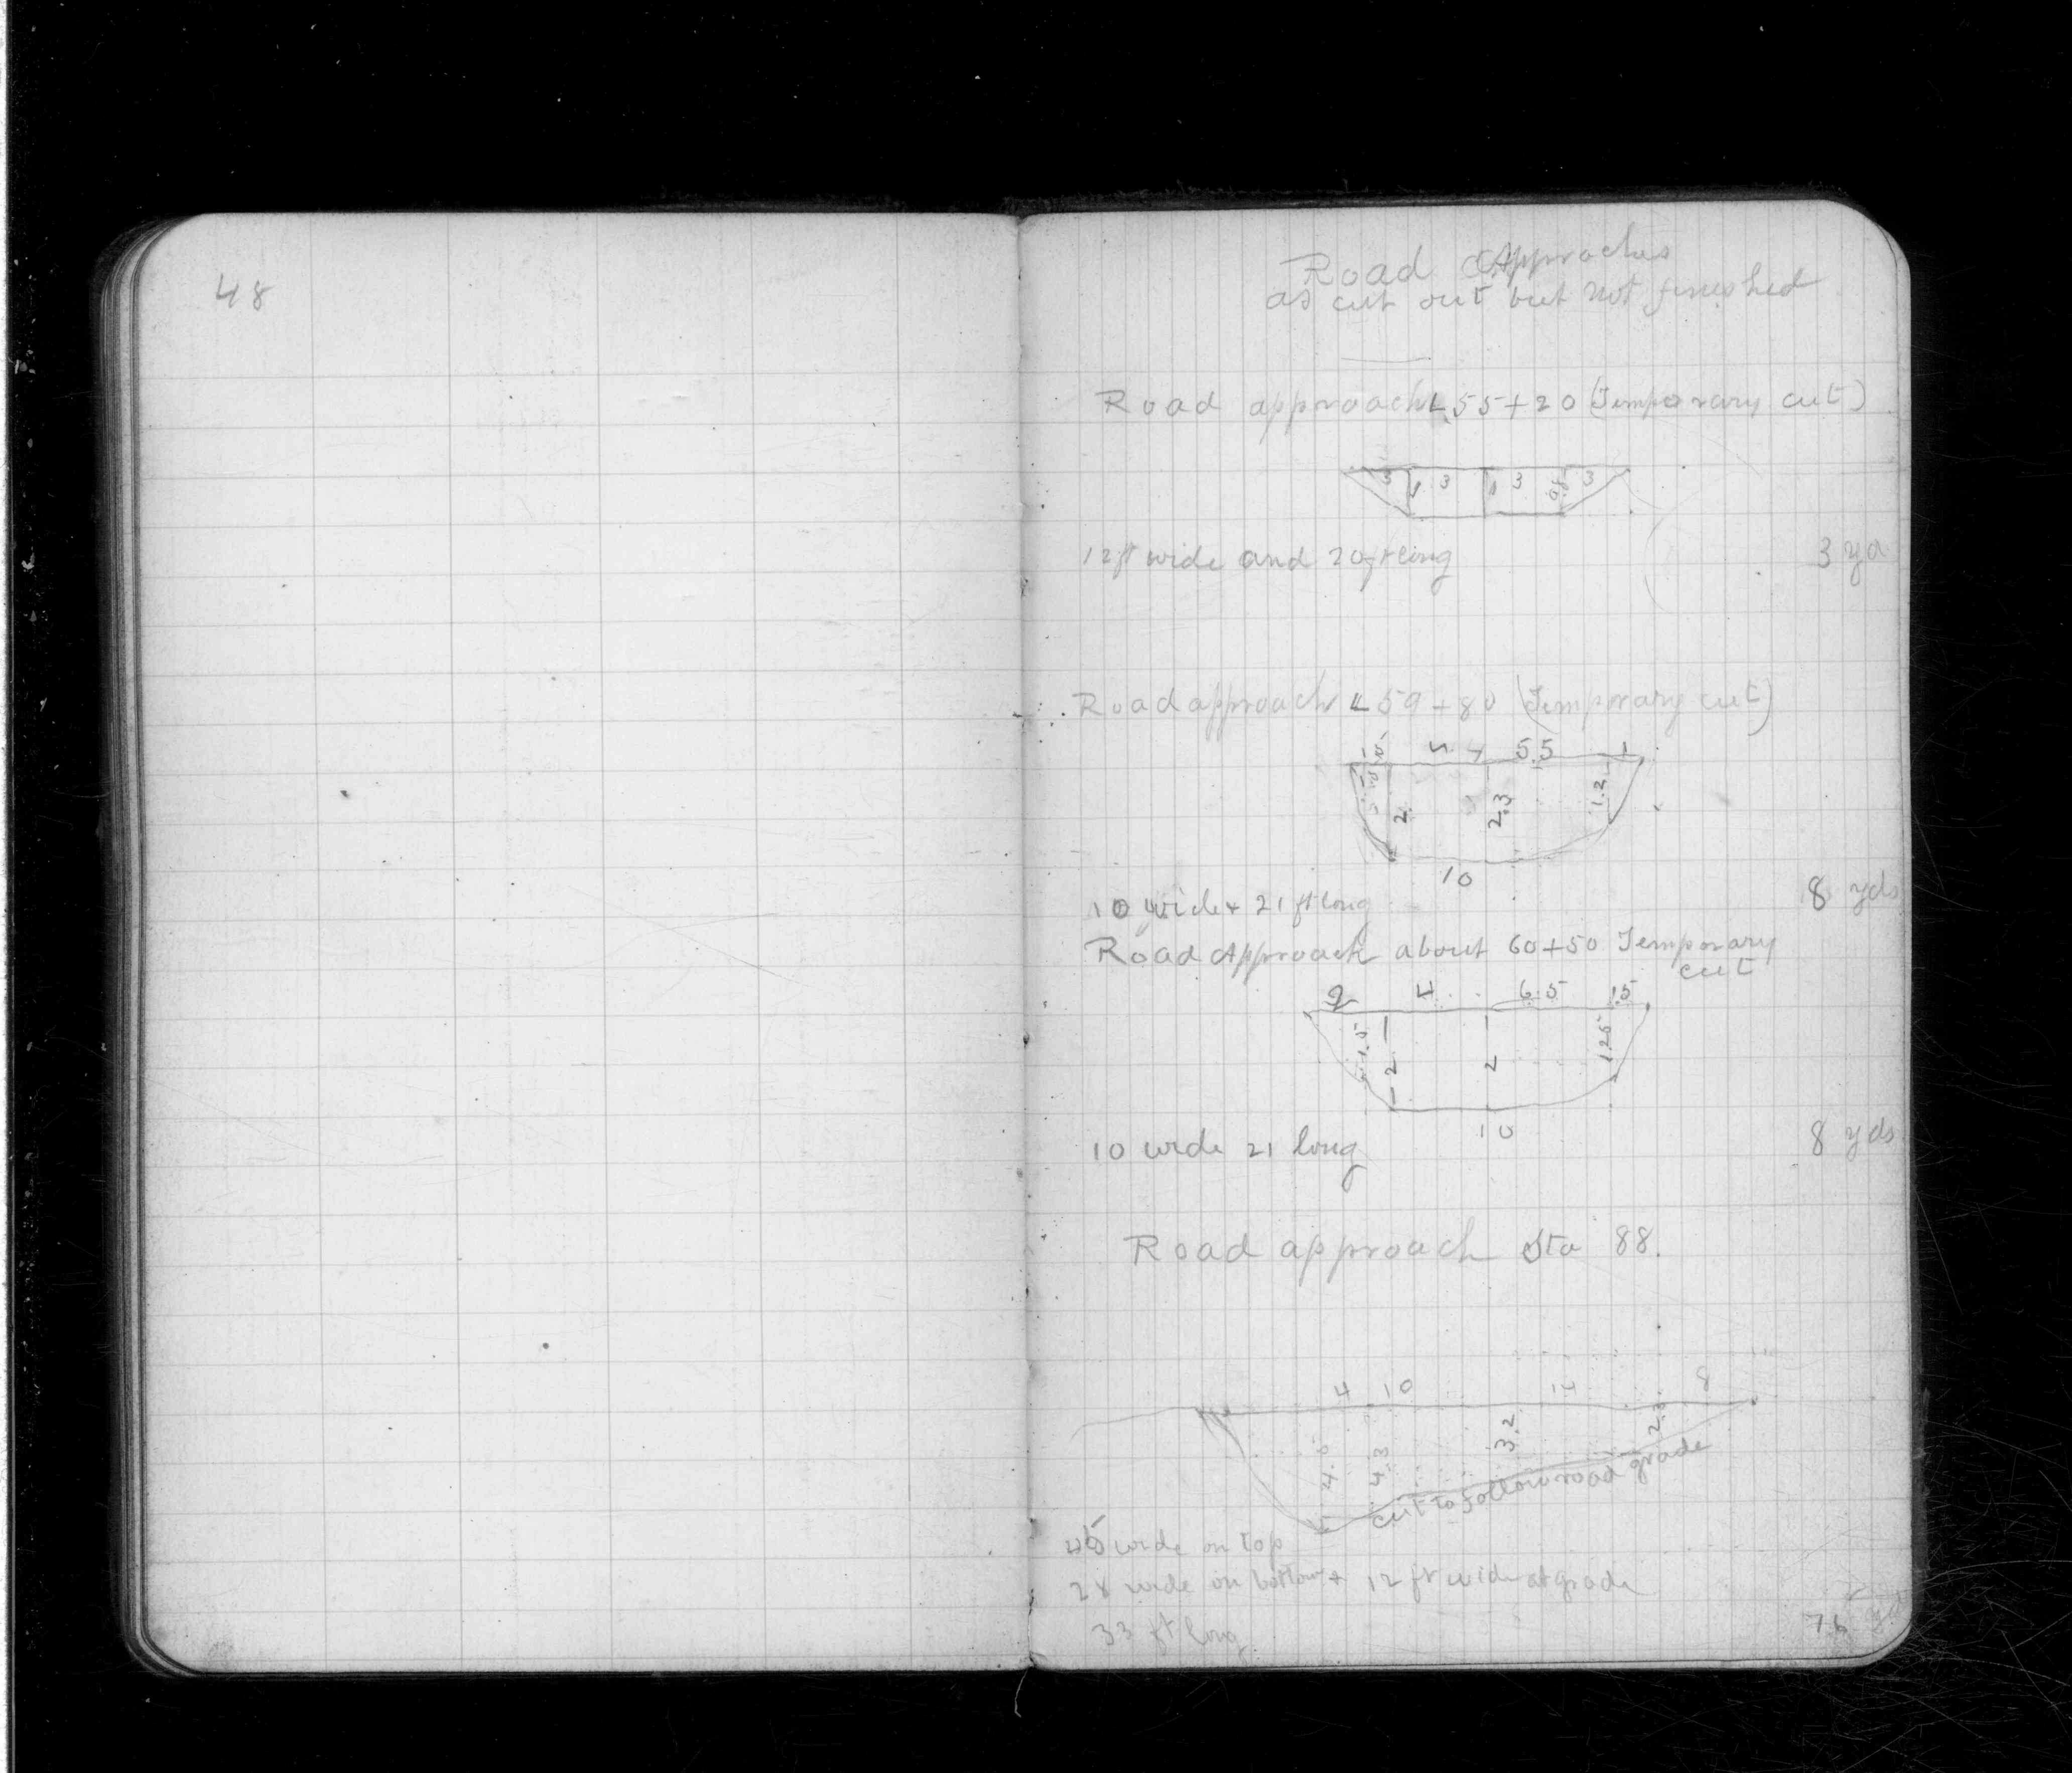 48
Road Approches
as cut out but not finished
Road approach L 55+20 (Temporary cut)
3 1 3 1 3 0.8 3
12 ft wide and 20 ft long 3 yd
Road approach L 59+80 (Temporary cut)
5.5 1
2. 2.3 1.2
10
10 wide + 21 ft long 8 yds
Road Approach about 60+50 Temporary
cut
2 4 6.5 1.5
1.5 2 2 1.25
10
10 wide 21 long 8 yds
Road approach Sta 88.
4 10 8
4.3 3.2
cut to follow road grade
wide on top
28 wide on bottom + 12 ft wide at grade
33 ft long
76